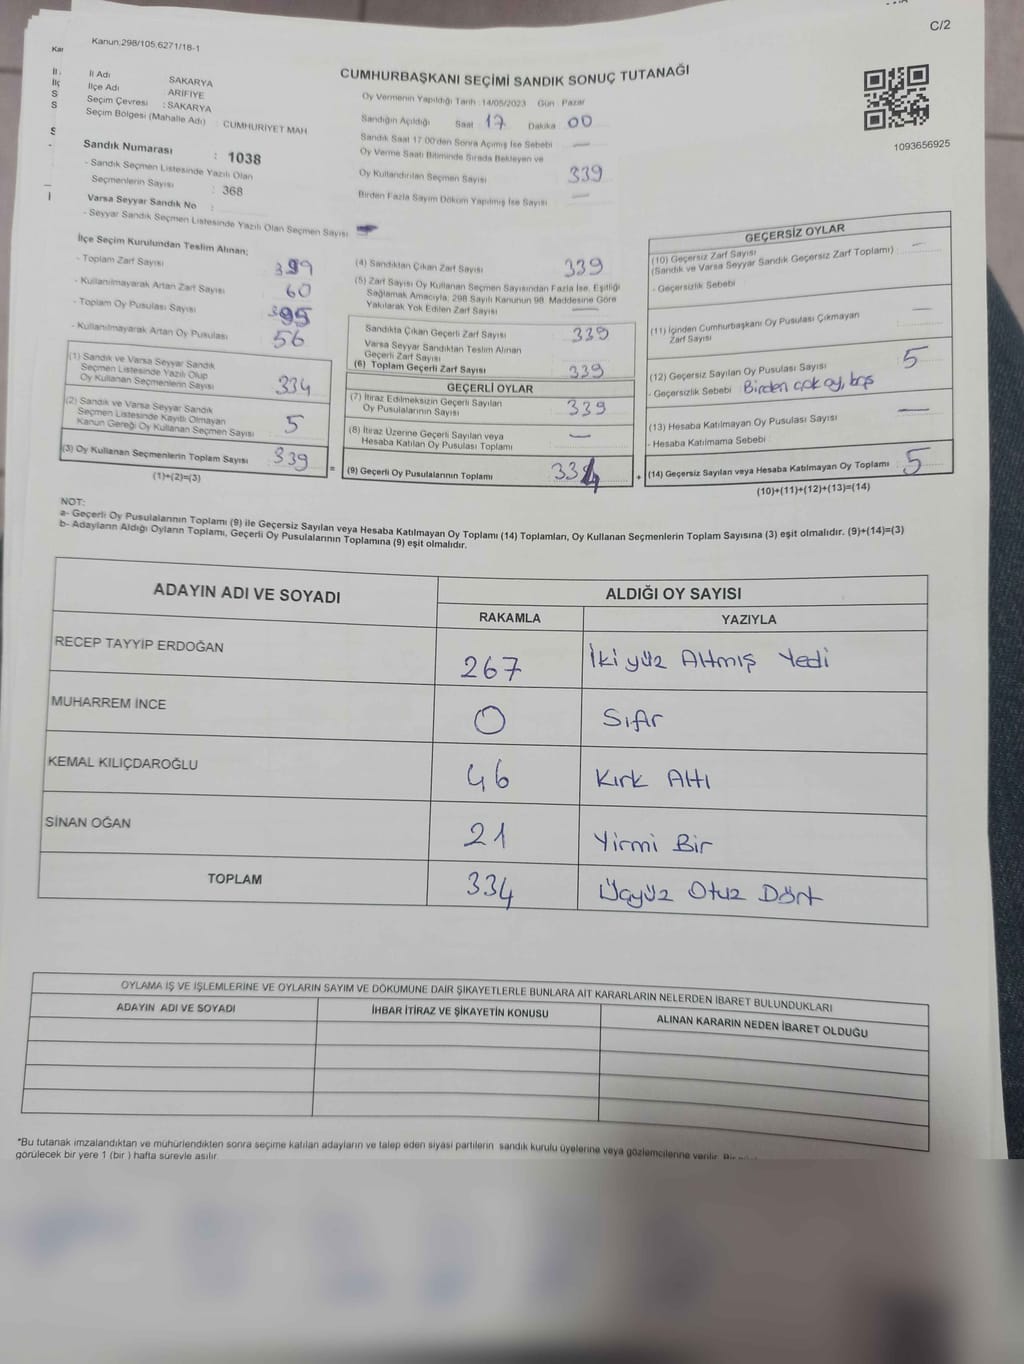 C/2
Kanun;298/105,6271/18-1
CUMHURBAŞKANI SEÇİMİ SANDIK SONUÇ TUTANAĞI
İl Adı SAKARYA
İlçe Adı ARİFİYE
Seçim Çevresi : SAKARYA
Seçim Bölgesi (Mahalle Adı) : CUMHURİYET MAH
Sandık Numarası : 1038
- Sandık Seçmen Listesinde Yazılı Olan
Seçmenlerin Sayısı : 368
Varsa Seyyar Sandık No :
- Seyyar Sandık Seçmen Listesinde Yazılı Olan Seçmen Sayısı
Oy Vermenin Yapıldığı Tarih :14/05/2023 Gün : Pazar
Sandığın Açıldığı Saat 17 Dakika 00
Sandık Saat 17.00'den Sonra Açılmış İse Sebebi —
Oy Verme Saati Bitiminde Sırada Bekleyen ve
Oy Kullandırılan Seçmen Sayısı 339
Birden Fazla Sayım Döküm Yapılmış İse Sayısı —
1093656925
İlçe Seçim Kurulundan Teslim Alınan;
- Toplam Zarf Sayısı 399
- Kullanılmayarak Artan Zarf Sayısı 60
- Toplam Oy Pusulası Sayısı 395
- Kullanılmayarak Artan Oy Pusulası 56
(1) Sandık ve Varsa Seyyar Sandık
Seçmen Listesinde Yazılı Olup
Oy Kullanan Seçmenlerin Sayısı 334
(2) Sandık ve Varsa Seyyar Sandık
Seçmen Listesinde Kayıtlı Olmayan
Kanun Gereği Oy Kullanan Seçmen Sayısı 5
(3) Oy Kullanan Seçmenlerin Toplam Sayısı 339
(1)+(2)=(3)
(4) Sandıktan Çıkan Zarf Sayısı 339
(5) Zarf Sayısı Oy Kullanan Seçmen Sayısından Fazla İse, Eşitliği
Sağlamak Amacıyla, 298 Sayılı Kanunun 98. Maddesine Göre
Yakılarak Yok Edilen Zarf Sayısı —
Sandıkta Çıkan Geçerli Zarf Sayısı 339
Varsa Seyyar Sandıktan Teslim Alınan
Geçerli Zarf Sayısı
(6) Toplam Geçerli Zarf Sayısı 339
GEÇERLİ OYLAR
(7) İtiraz Edilmeksizin Geçerli Sayılan
Oy Pusulalarının Sayısı 339
(8) İtiraz Üzerine Geçerli Sayılan veya
Hesaba Katılan Oy Pusulası Toplamı —
= (9) Geçerli Oy Pusulalarının Toplamı 334
GEÇERSİZ OYLAR
(10) Geçersiz Zarf Sayısı —
(Sandık ve Varsa Seyyar Sandık Geçersiz Zarf Toplamı)
- Geçersizlik Sebebi
(11) İçinden Cumhurbaşkanı Oy Pusulası Çıkmayan
Zarf Sayısı —
(12) Geçersiz Sayılan Oy Pusulası Sayısı 5
- Geçersizlik Sebebi Birden çok oy, boş
(13) Hesaba Katılmayan Oy Pusulası Sayısı —
- Hesaba Katılmama Sebebi
+ (14) Geçersiz Sayılan veya Hesaba Katılmayan Oy Toplamı 5
(10)+(11)+(12)+(13)=(14)
NOT:
a- Geçerli Oy Pusulalarının Toplamı (9) ile Geçersiz Sayılan veya Hesaba Katılmayan Oy Toplamı (14) Toplamları, Oy Kullanan Seçmenlerin Toplam Sayısına (3) eşit olmalıdır. (9)+(14)=(3)
b- Adayların Aldığı Oyların Toplamı, Geçerli Oy Pusulalarının Toplamına (9) eşit olmalıdır.
ADAYIN ADI VE SOYADI ALDIĞI OY SAYISI
RAKAMLA YAZIYLA
RECEP TAYYİP ERDOĞAN 267 İki yüz Altmış Yedi
MUHARREM İNCE 0 Sıfır
KEMAL KILIÇDAROĞLU 46 Kırk Altı
SİNAN OĞAN 21 Yirmi Bir
TOPLAM 334 Üçyüz Otuz Dört
OYLAMA İŞ VE İŞLEMLERİNE VE OYLARIN SAYIM VE DÖKÜMÜNE DAİR ŞİKAYETLERLE BUNLARA AİT KARARLARIN NELERDEN İBARET BULUNDUKLARI
ADAYIN ADI VE SOYADI İHBAR İTİRAZ VE ŞİKAYETİN KONUSU ALINAN KARARIN NEDEN İBARET OLDUĞU
*Bu tutanak imzalandıktan ve mühürlendikten sonra seçime katılan adayların ve talep eden siyasi partilerin sandık kurulu üyelerine veya gözlemcilerine verilir. Bir
görülecek bir yere 1 (bir ) hafta süreyle asılır.